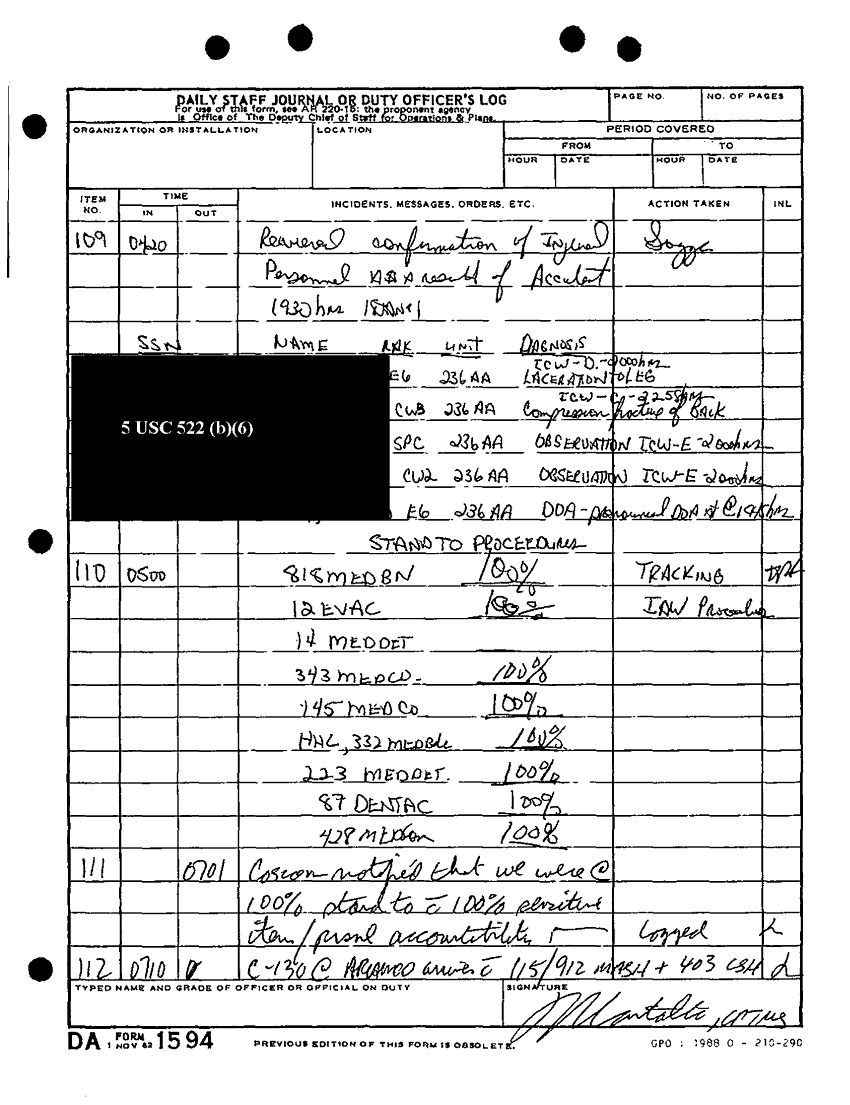 DAILY STAFF JOURNAL OR DUTY OFFICER'S LOG
For use of this form, see AR 220-15; the proponent agency
is Office of The Deputy Chief of Staff for Operations & Plans.
PAGE NO.
NO. OF PAGES
ORGANIZATION OR INSTALLATION
LOCATION
PERIOD COVERED
FROM
TO
HOUR DATE HOUR DATE
ITEM NO.
TIME
IN OUT
INCIDENTS, MESSAGES, ORDERS, ETC.
ACTION TAKEN
INL
109 0420 Received confirmation of Injured
Personnel as a result of Accident
1930 hrs 18JAN91
SSN NAME RNK UNIT DIAGNOSIS
ICW-D-2000hrs
E6 236 AA LACERATION TO LEG
2255
236 AA Compression fracture of Back
5 USC 522 (b)(6)
SPC 236 AA OBSERVATION ICW-E-2000hrs
CW2 236 AA OBSERVATION ICW-E-2000hrs
E6 236 AA DOA-pronounced DOA at
STAND TO PROCEDURES
110 0500 818 MED BN 100% TRACKING
12 EVAC IAW Procedures
14 MEDDET
343 MEDCO 100%
145 MEDCO 100%
HHC, 332 MEDBde 100%
223 MEDDET. 100%
87 DENTAC 100%
428 100%
111 0701 Coscom notified that we were @
100% stand to c̄ 100% sensitive
item/prsnl accountability Logged
112 0710 C-130 @ c̄ 115/912 MASH + 403 CSH
TYPED NAME AND GRADE OF OFFICER OR OFFICIAL ON DUTY
SIGNATURE
DA FORM 1 NOV 62 1594
PREVIOUS EDITION OF THIS FORM IS OBSOLETE.
GPO : 1988 O - 210-290